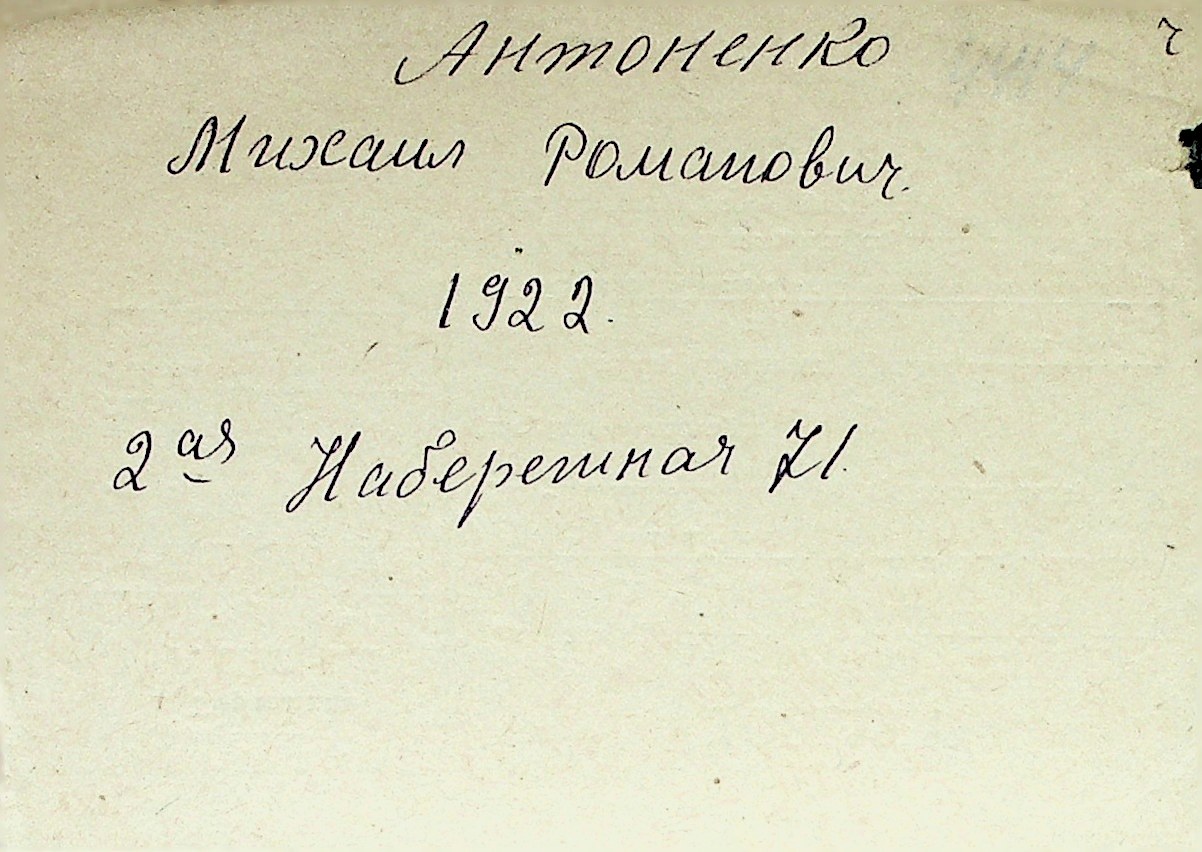 Антоненко ч
Михаил Романович.
1922.
2ая Набережная 71.